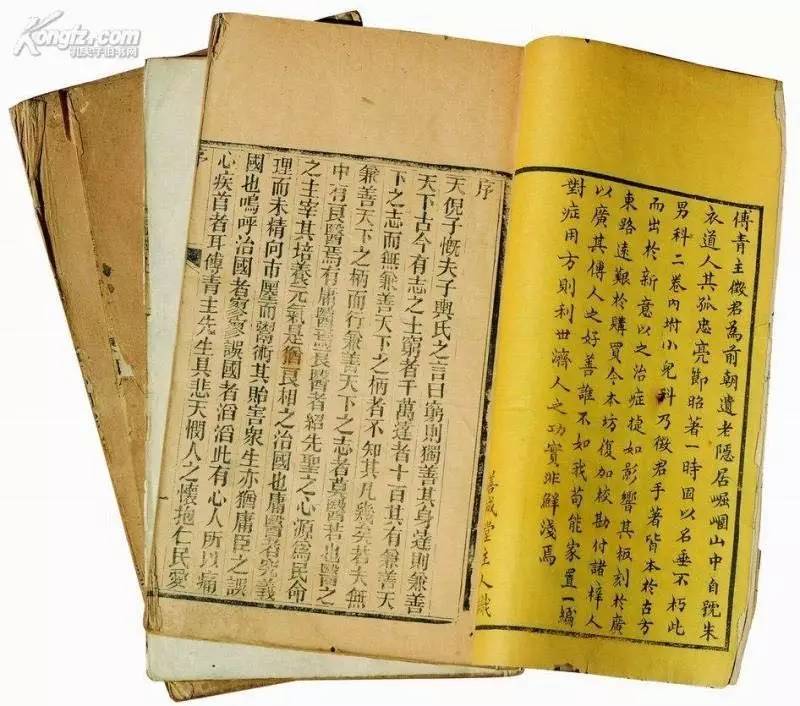 Kongfz.com
孔夫子旧书网
傅青主徵君為前朝遺老隱居崛𡼊山中自號朱
衣道人其孤忠亮節昭著一時因以名垂不朽此
男科二卷內坿小兒科乃徵君手著皆本於古方
而出於新意以之治症捷如影響其板刻於廣
東路遠艱於購買今本坊復加校勘付諸梓人
以廣其傳人之好善誰不如我苟能家置一編
對症用方則利世濟人之功實非鮮淺焉
善成堂主人識
序
天倪子慨夫子輿氏之言曰窮則獨善其身達則兼善
天下古今有志之士窮者千萬達者十一百其有兼善天
下之志而無兼善天下之柄者不知其凡幾矣若夫無
兼善天下之柄而行兼善天下之志者莫醫若也醫之
中有良醫焉有庸醫焉良醫者紹先聖之心源為民命
之主宰其培養元氣是猶良相之治國也庸醫者究義
理而未精向市廛而鬻術其貽害衆生亦猶庸臣之誤
國也嗚呼治國者寥寥誤國者滔滔此有心人所以痛
心疾首者耳傅青主先生具悲天憫人之懷抱仁民愛
序